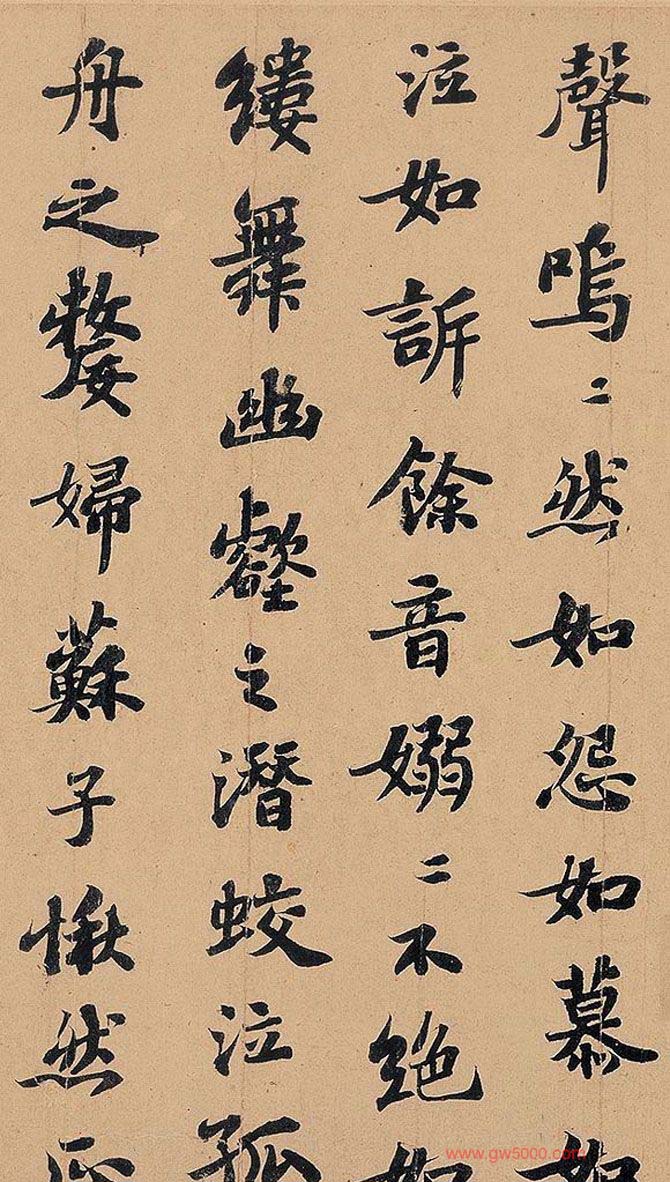 聲嗚〻然如怨如慕如
泣如訴餘音嫋〻不絕如
縷舞幽壑之潛蛟泣孤
舟之嫠婦蘇子愀然正
www.gw5000.com